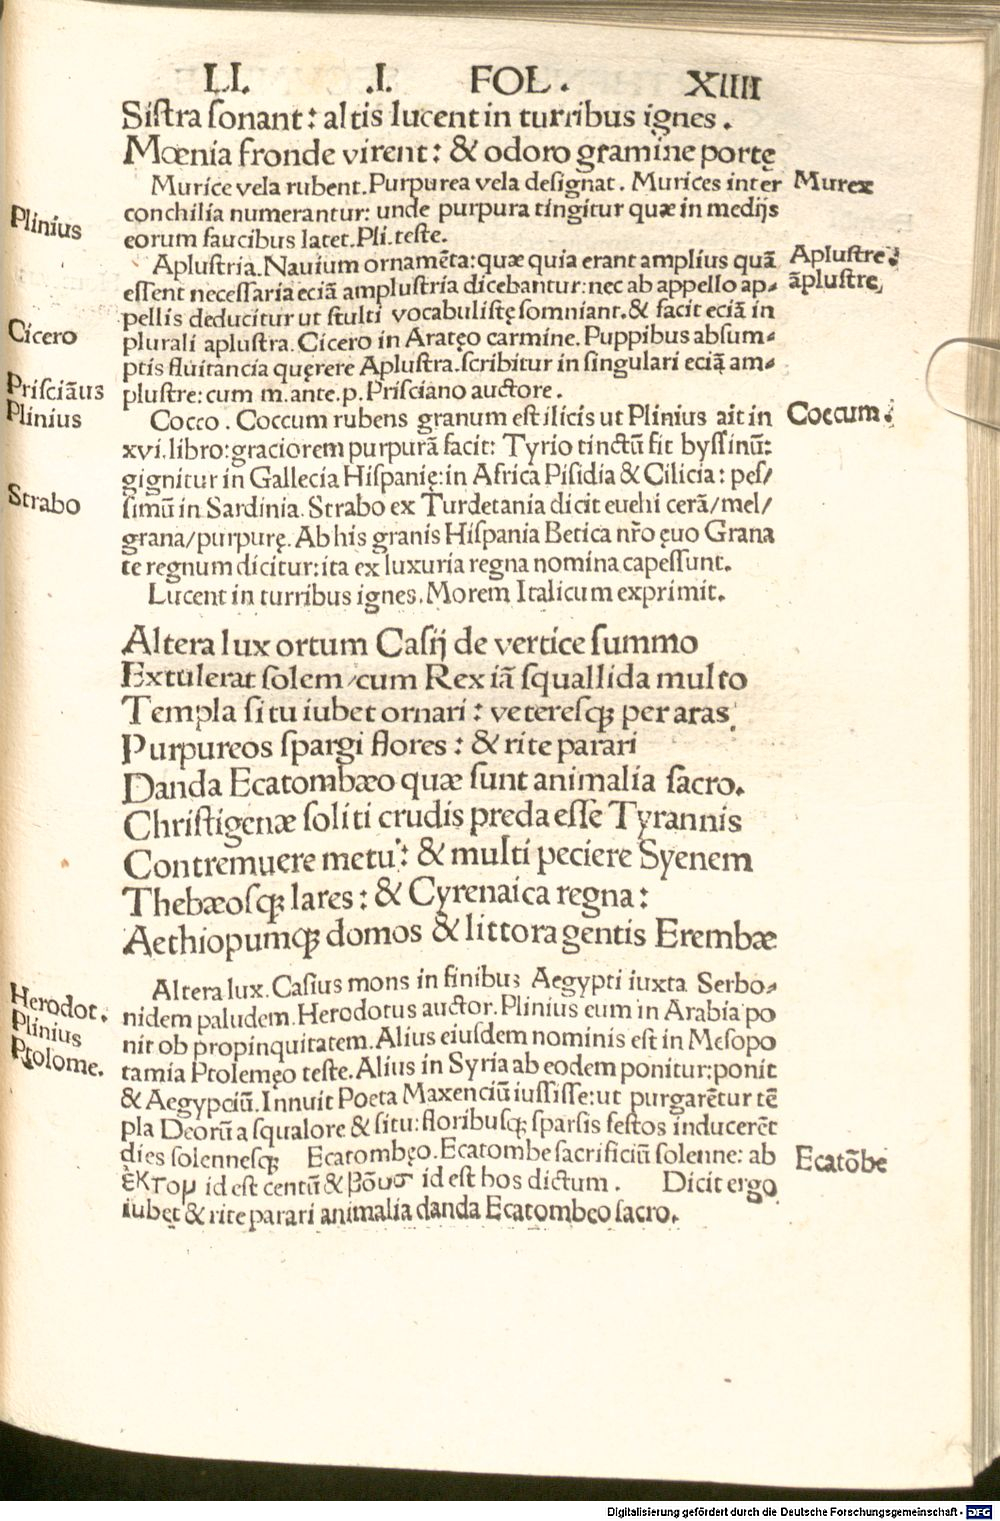 LI. .I. FOL. XIIII
Sistra sonant: altis lucent in turribus ignes.
Mœnia fronde virent: & odoro gramine portę
Murice vela rubent. Purpurea vela designat. Murices inter
Murex
conchilia numerantur: unde purpura tingitur quæ in medijs
Plinius
eorum faucibus latet. Pli. teste.
Aplustria. Nauium ornamēta: quæ quia erant amplius quā
Aplustre:
essent necessaria eciā amplustria dicebantur: nec ab appello ap-
āplustre,
pellis deducitur ut stulti vocabulistę somniant. & facit eciā in
Cicero
plurali aplustra. Cicero in Aratęo carmine. Puppibus absum-
ptis fluitancia quęrere Aplustra. scribitur in singulari eciā am-
Prisciāus
plustre: cum m. ante. p. Prisciano auctore.
Plinius
Cocco. Coccum rubens granum est ilicis ut Plinius ait in
Coccum:
xvi. libro: graciorem purpurā facit: Tyrio tinctū fit byssinū:
gignitur in Gallecia Hispanię: in Africa Pisidia & Cilicia: pes/
Strabo
simū in Sardinia. Strabo ex Turdetania dicit euehi cerā/mel/
grana/purpurę. Ab his granis Hispania Betica nr̄o ęuo Grana
te regnum dicitur: ita ex luxuria regna nomina capessunt.
Lucent in turribus ignes. Morem Italicum exprimit.
Altera lux ortum Casij de vertice summo
Extulerat solem/cum Rex iā squallida multo
Templa situ iubet ornari: veteresqꝫ per aras
Purpureos spargi flores: & rite parari
Danda Ecatombæo quæ sunt animalia sacro.
Christigenæ soliti crudis preda esse Tyrannis
Contremuere metu: & multi peciere Syenem
Thebæosqꝫ lares: & Cyrenaica regna:
Aethiopumqꝫ domos & littora gentis Erembæ
Altera lux. Casius mons in finibus Aegypti iuxta Serbo-
Herodot.
nidem paludem. Herodotus auctor. Plinius eum in Arabia po
Plinius
nit ob propinquitatem. Alius eiusdem nominis est in Mesopo
Ptolome.
tamia Ptolemęo teste. Alius in Syria ab eodem ponitur: ponit
& Aegypciū. Innuit Poeta Maxenciū iussisse: ut purgarētur tē
pla Deorū a squalore & situ: floribusqꝫ sparsis festos inducerēt
dies solennesqꝫ Ecatombęo. Ecatombe sacrificiū solenne: ab
Ecatōbe
ἑκτομ id est centū & βōυσ id est bos dictum. Dicit ergo
iubęt & rite parari animalia danda Ecatombeo sacro.
Digitalisierung gefördert durch die Deutsche Forschungsgemeinschaft - DFG